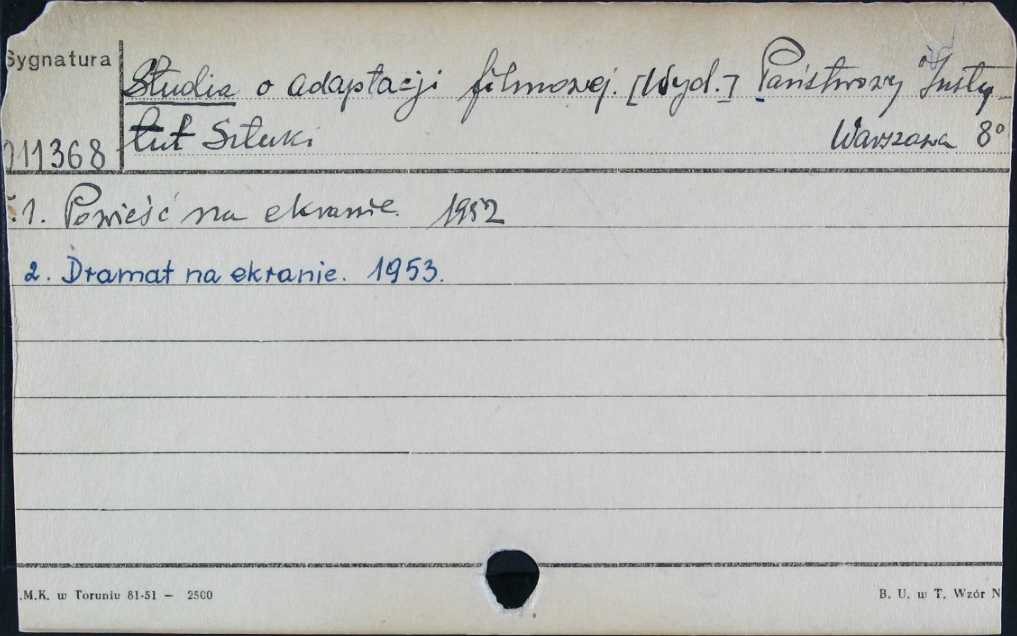 Sygnatura
Studia o adaptacji filmowej. [Wyd.] Państwowy Insty-
tut Sztuki Warszawa 8°
011368
1. Powieść na ekranie. 1952
2. Dramat na ekranie. 1953.
.M.K. w Toruniu 81-51 — 2500
B. U. w T. Wzór N